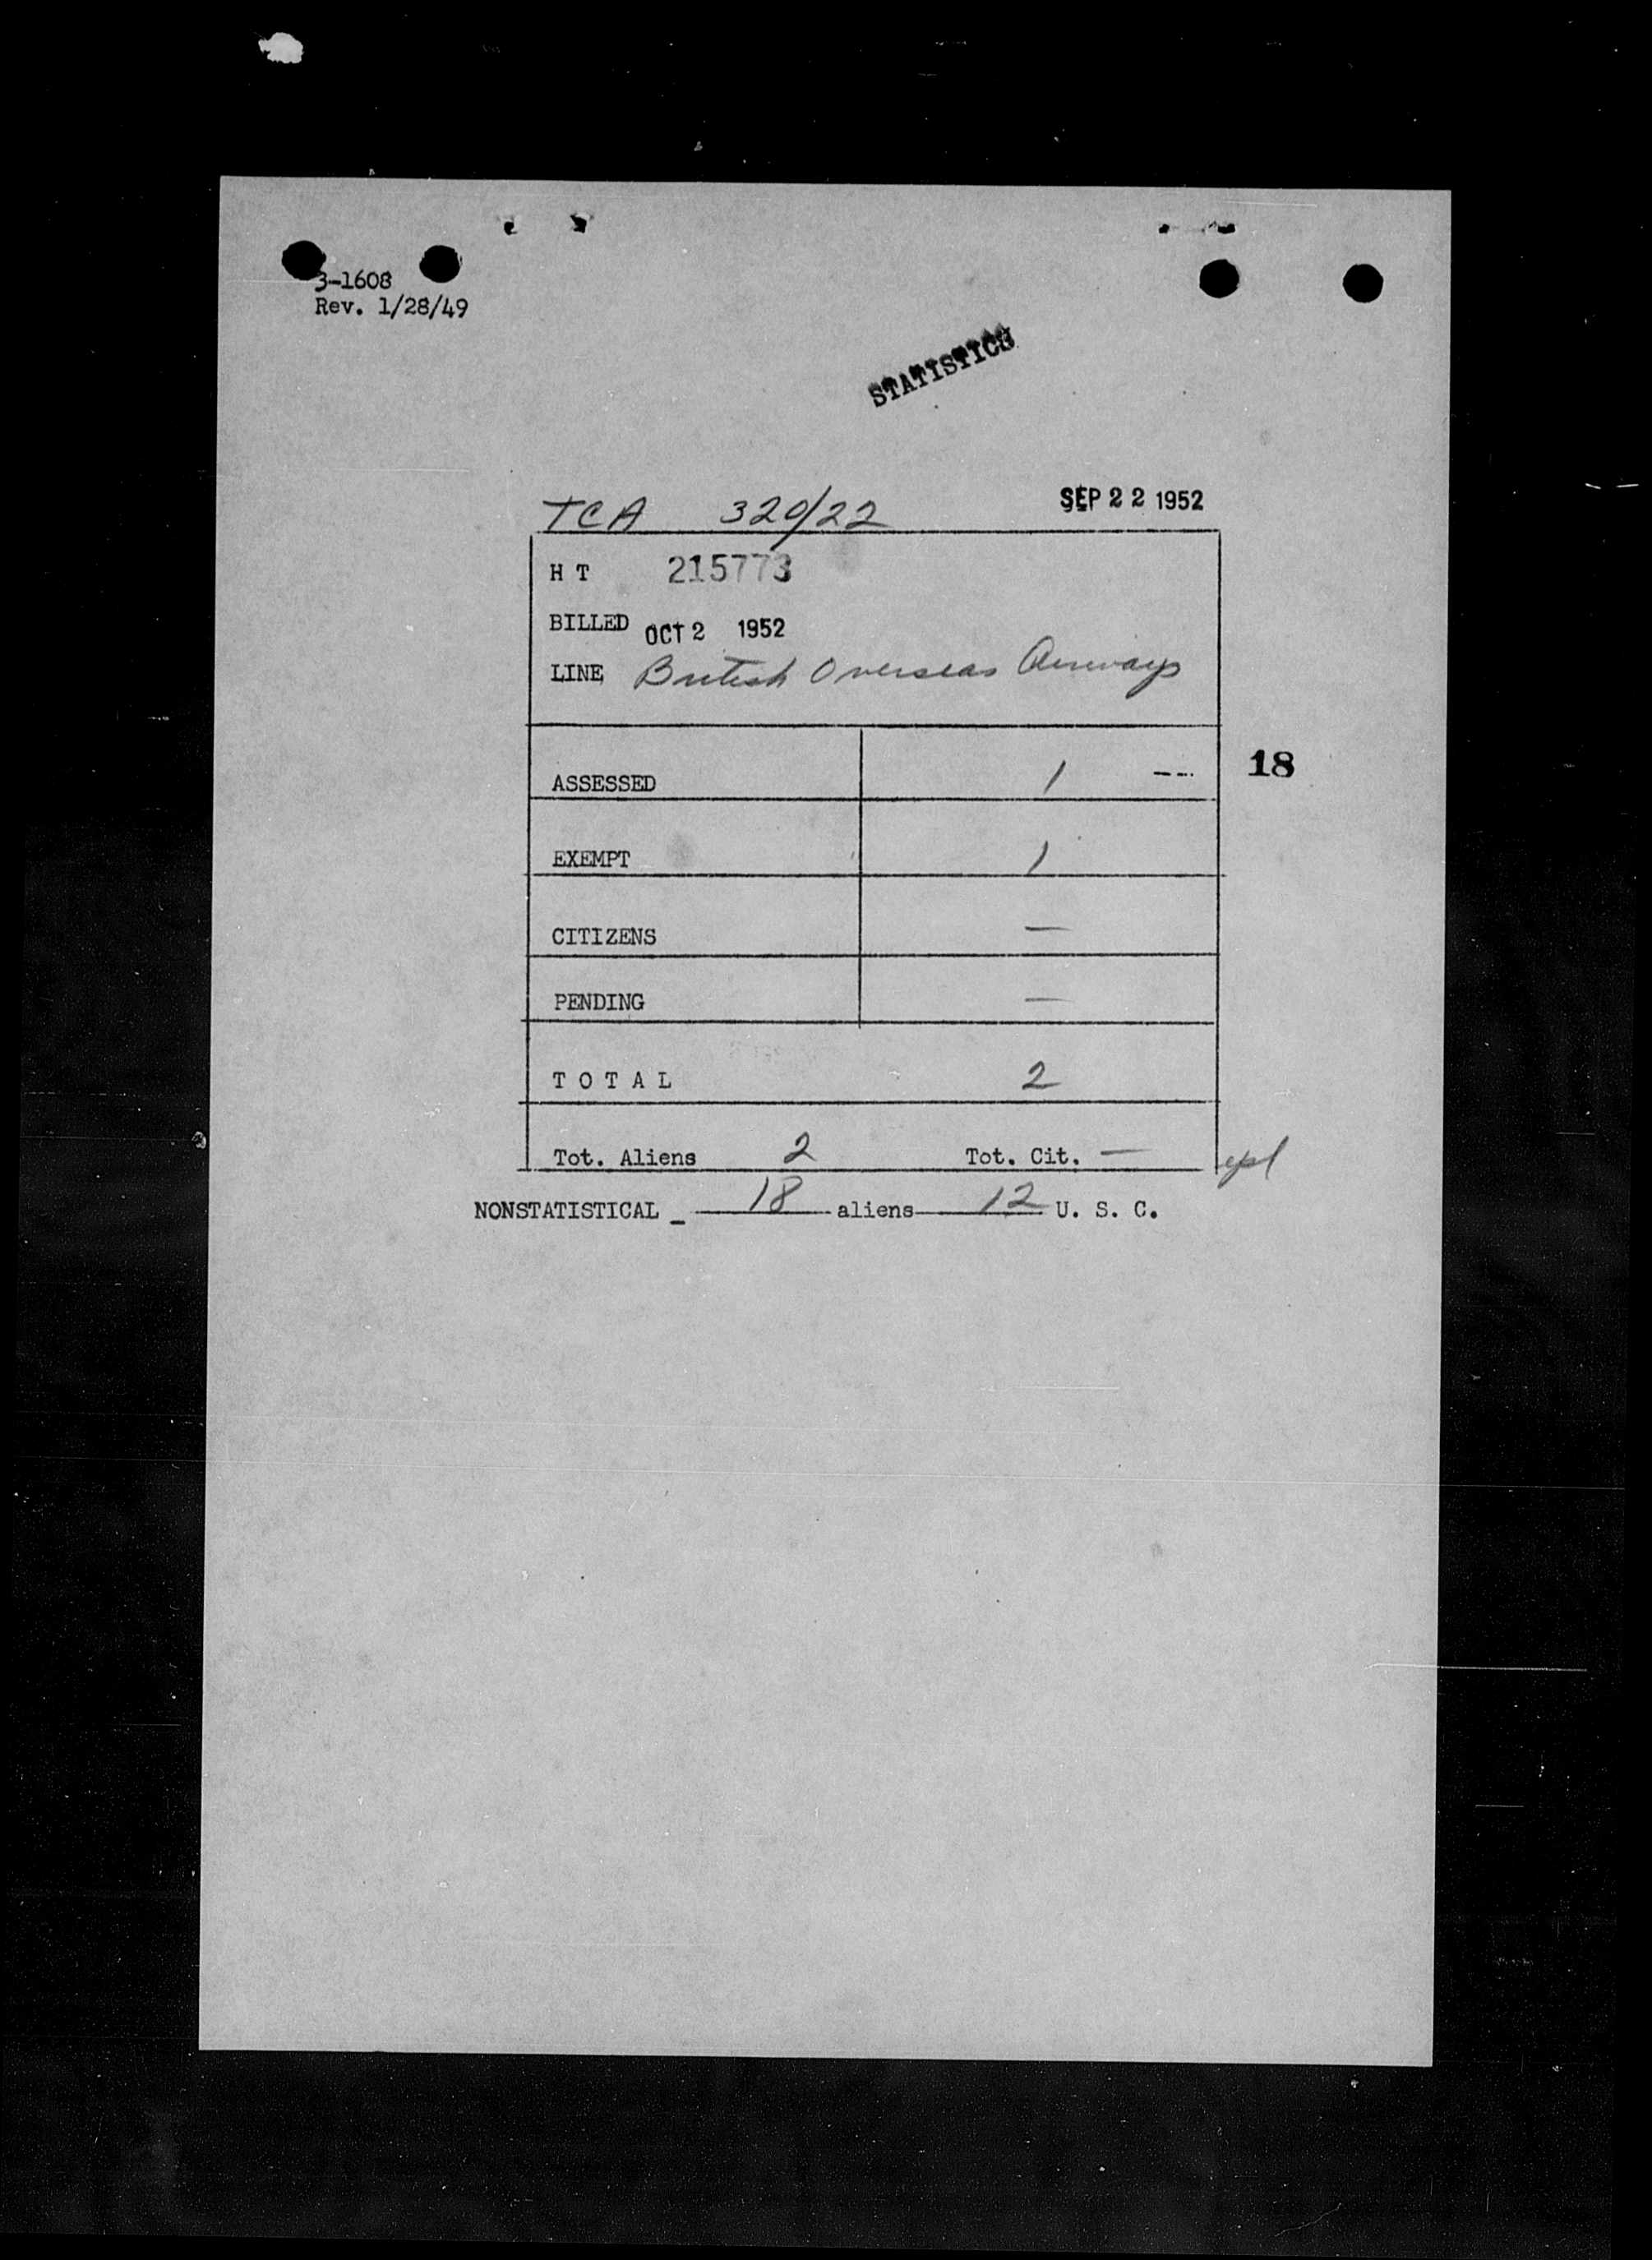 3-1608
Rev. 1/28/49
STATISTICS
TCA 320/22 SEP 22 1952
H T 215773
BILLED OCT 2 1952
LINE British Overseas Airways
ASSESSED 1 --- 18
EXEMPT 1
CITIZENS —
PENDING —
T O T A L 2
Tot. Aliens 2 Tot. Cit. —
NONSTATISTICAL _ 18 aliens 12 U. S. C.